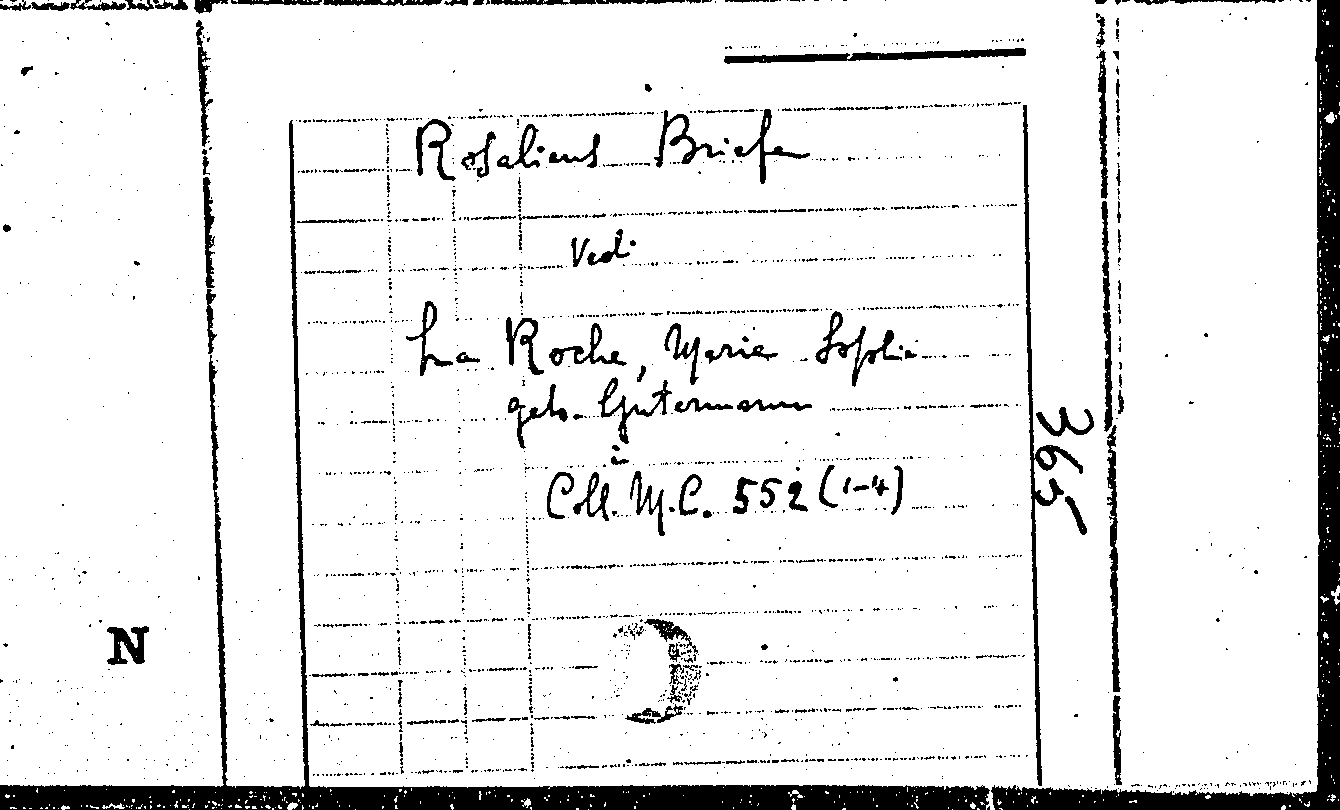 Rosaliens Briefe
Vedi
La Roche, Marie Sophie
geb. Gutermann
Coll. M.C. 552 (1-4)
365
N